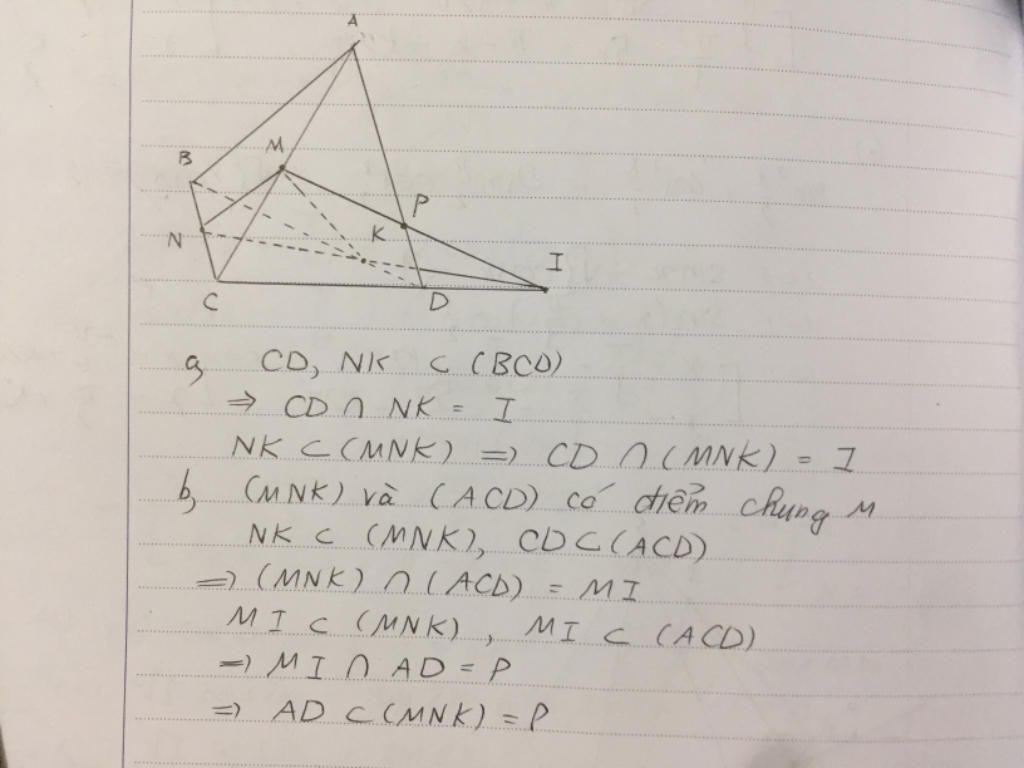 A
B
M
P
K
N
I
C
D
a, CD, NK ⊂ (BCD)
⇒ CD ∩ NK = I
NK ⊂ (MNK) ⇒ CD ∩ (MNK) = I
b, (MNK) và (ACD) có điểm chung M
NK ⊂ (MNK), CD ⊂ (ACD)
⇒ (MNK) ∩ (ACD) = MI
MI ⊂ (MNK), MI ⊂ (ACD)
⇒ MI ∩ AD = P
⇒ AD ⊂ (MNK) = P